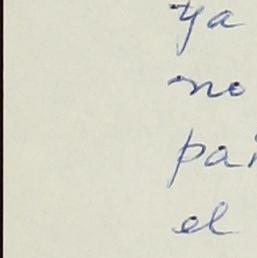 ya
no
pai
el